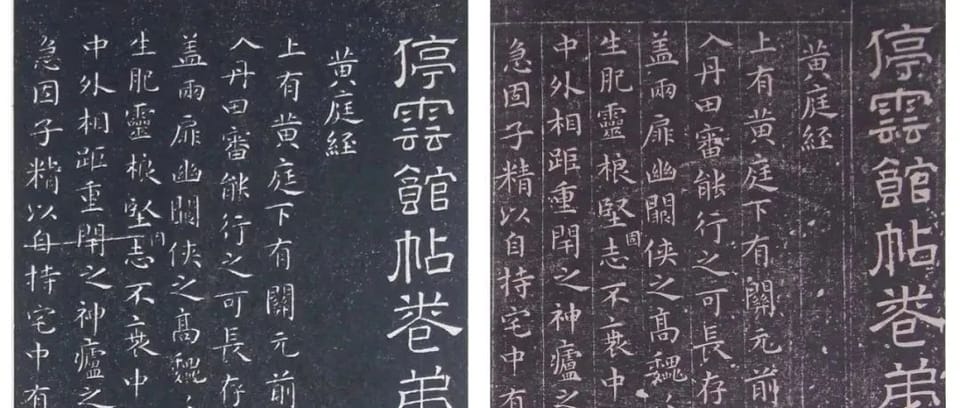 停雲館帖卷弟
黄庭経
上有黄庭下有關元前
入丹田審能行之可長存
盖兩扉幽闕俠之高巍
生肥靈根堅志不衰中
中外相距重閇之神廬之
急固子精以自持宅中有
停雲館帖卷弟
黄庭経
上有黄庭下有關元前
入丹田審能行之可長存
盖兩扉幽闕俠之高巍
生肥靈根堅志固不衰中
中外相距重閇之神廬之
急固子精以自持宅中有